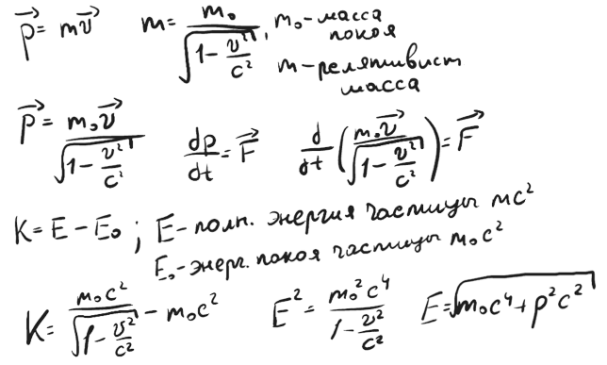 p⃗ = mv⃗   m = m₀ / √(1 - v²/c²), m₀ - масса покоя
m - релятивист масса
p⃗ = m₀v⃗ / √(1 - v²/c²)   dp/dt = F⃗   d/dt (m₀v⃗ / √(1 - v²/c²)) = F⃗
K = E - E₀ ; E - полн. энергия частицы mc²
E₀ - энерг. покоя частицы m₀c²
K = m₀c² / √(1 - v²/c²) - m₀c²   E² = m₀²c⁴ / (1 - v²/c²)   E = √(m₀c⁴ + p²c²)